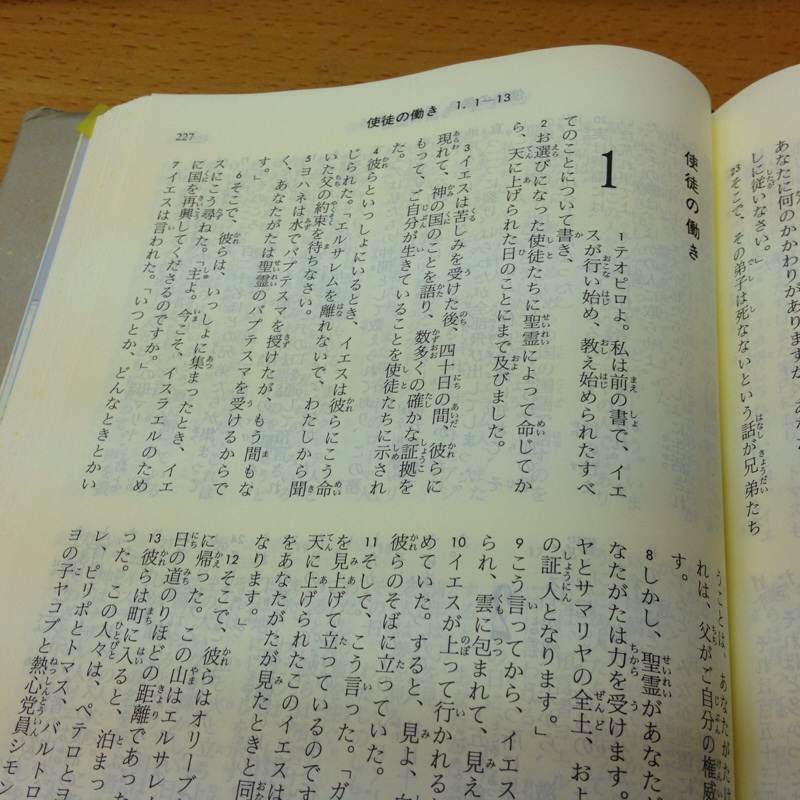 使徒の働き 1. 1―13
227
あなたに何のかかわりがありますか。
しに従いなさい。」
23そこで、その弟子は死なないという話が兄弟たち
使徒の働き
1
1テオピロよ。私は前の書で、イエ
スが行い始め、教え始められたすべ
てのことについて書き、
2お選びになった使徒たちに聖霊によって命じてか
ら、天に上げられた日のことにまで及びました。
3イエスは苦しみを受けた後、四十日の間、彼らに
現れて、神の国のことを語り、数多くの確かな証拠を
もって、ご自分が生きていることを使徒たちに示され
た。
4彼らといっしょにいるとき、イエスは彼らにこう命
じられた。「エルサレムを離れないで、わたしから聞
いた父の約束を待ちなさい。
5ヨハネは水でバプテスマを授けたが、もう間もな
く、あなたがたは聖霊のバプテスマを受けるからで
す。」
6そこで、彼らは、いっしょに集まったとき、イエ
スにこう尋ねた。「主よ。今こそ、イスラエルのため
に国を再興してくださるのですか。」
7イエスは言われた。「いつとか、どんなときとかい
うことは、あなたがたは
れは、父がご自分の権威
す。
8しかし、聖霊があなた
なたがたは力を受けます。
ヤとサマリヤの全土、およ
の証人となります。」
9こう言ってから、イエス
られ、雲に包まれて、見え
10イエスが上って行かれる
めていた。すると、見よ、
彼らのそばに立っていた。
11そして、こう言った。「ガ
を見上げて立っているのです
天に上げられたこのイエスは
をあなたがたが見たときと同
なります。」
12そこで、彼らはオリーブ
に帰った。この山はエルサレ
日の道のりほどの距離であった
13彼らは町に入ると、泊まっ
った。この人々は、ペテロとヨ
レ、ピリポとトマス、バルトロ
ヨの子ヤコブと熱心党員シモン